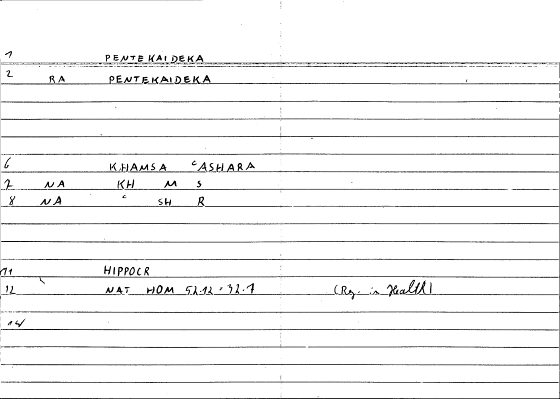 1 PENTEKAIDEKA
2 RA PENTEKAIDEKA
6 KHAMSA ᶜASHARA
7 NA KH M S
8 NA ᶜ SH R
11 HIPPOCR
12 NAT HOM 52.12 = 92.1 (Reg. in Health)
14